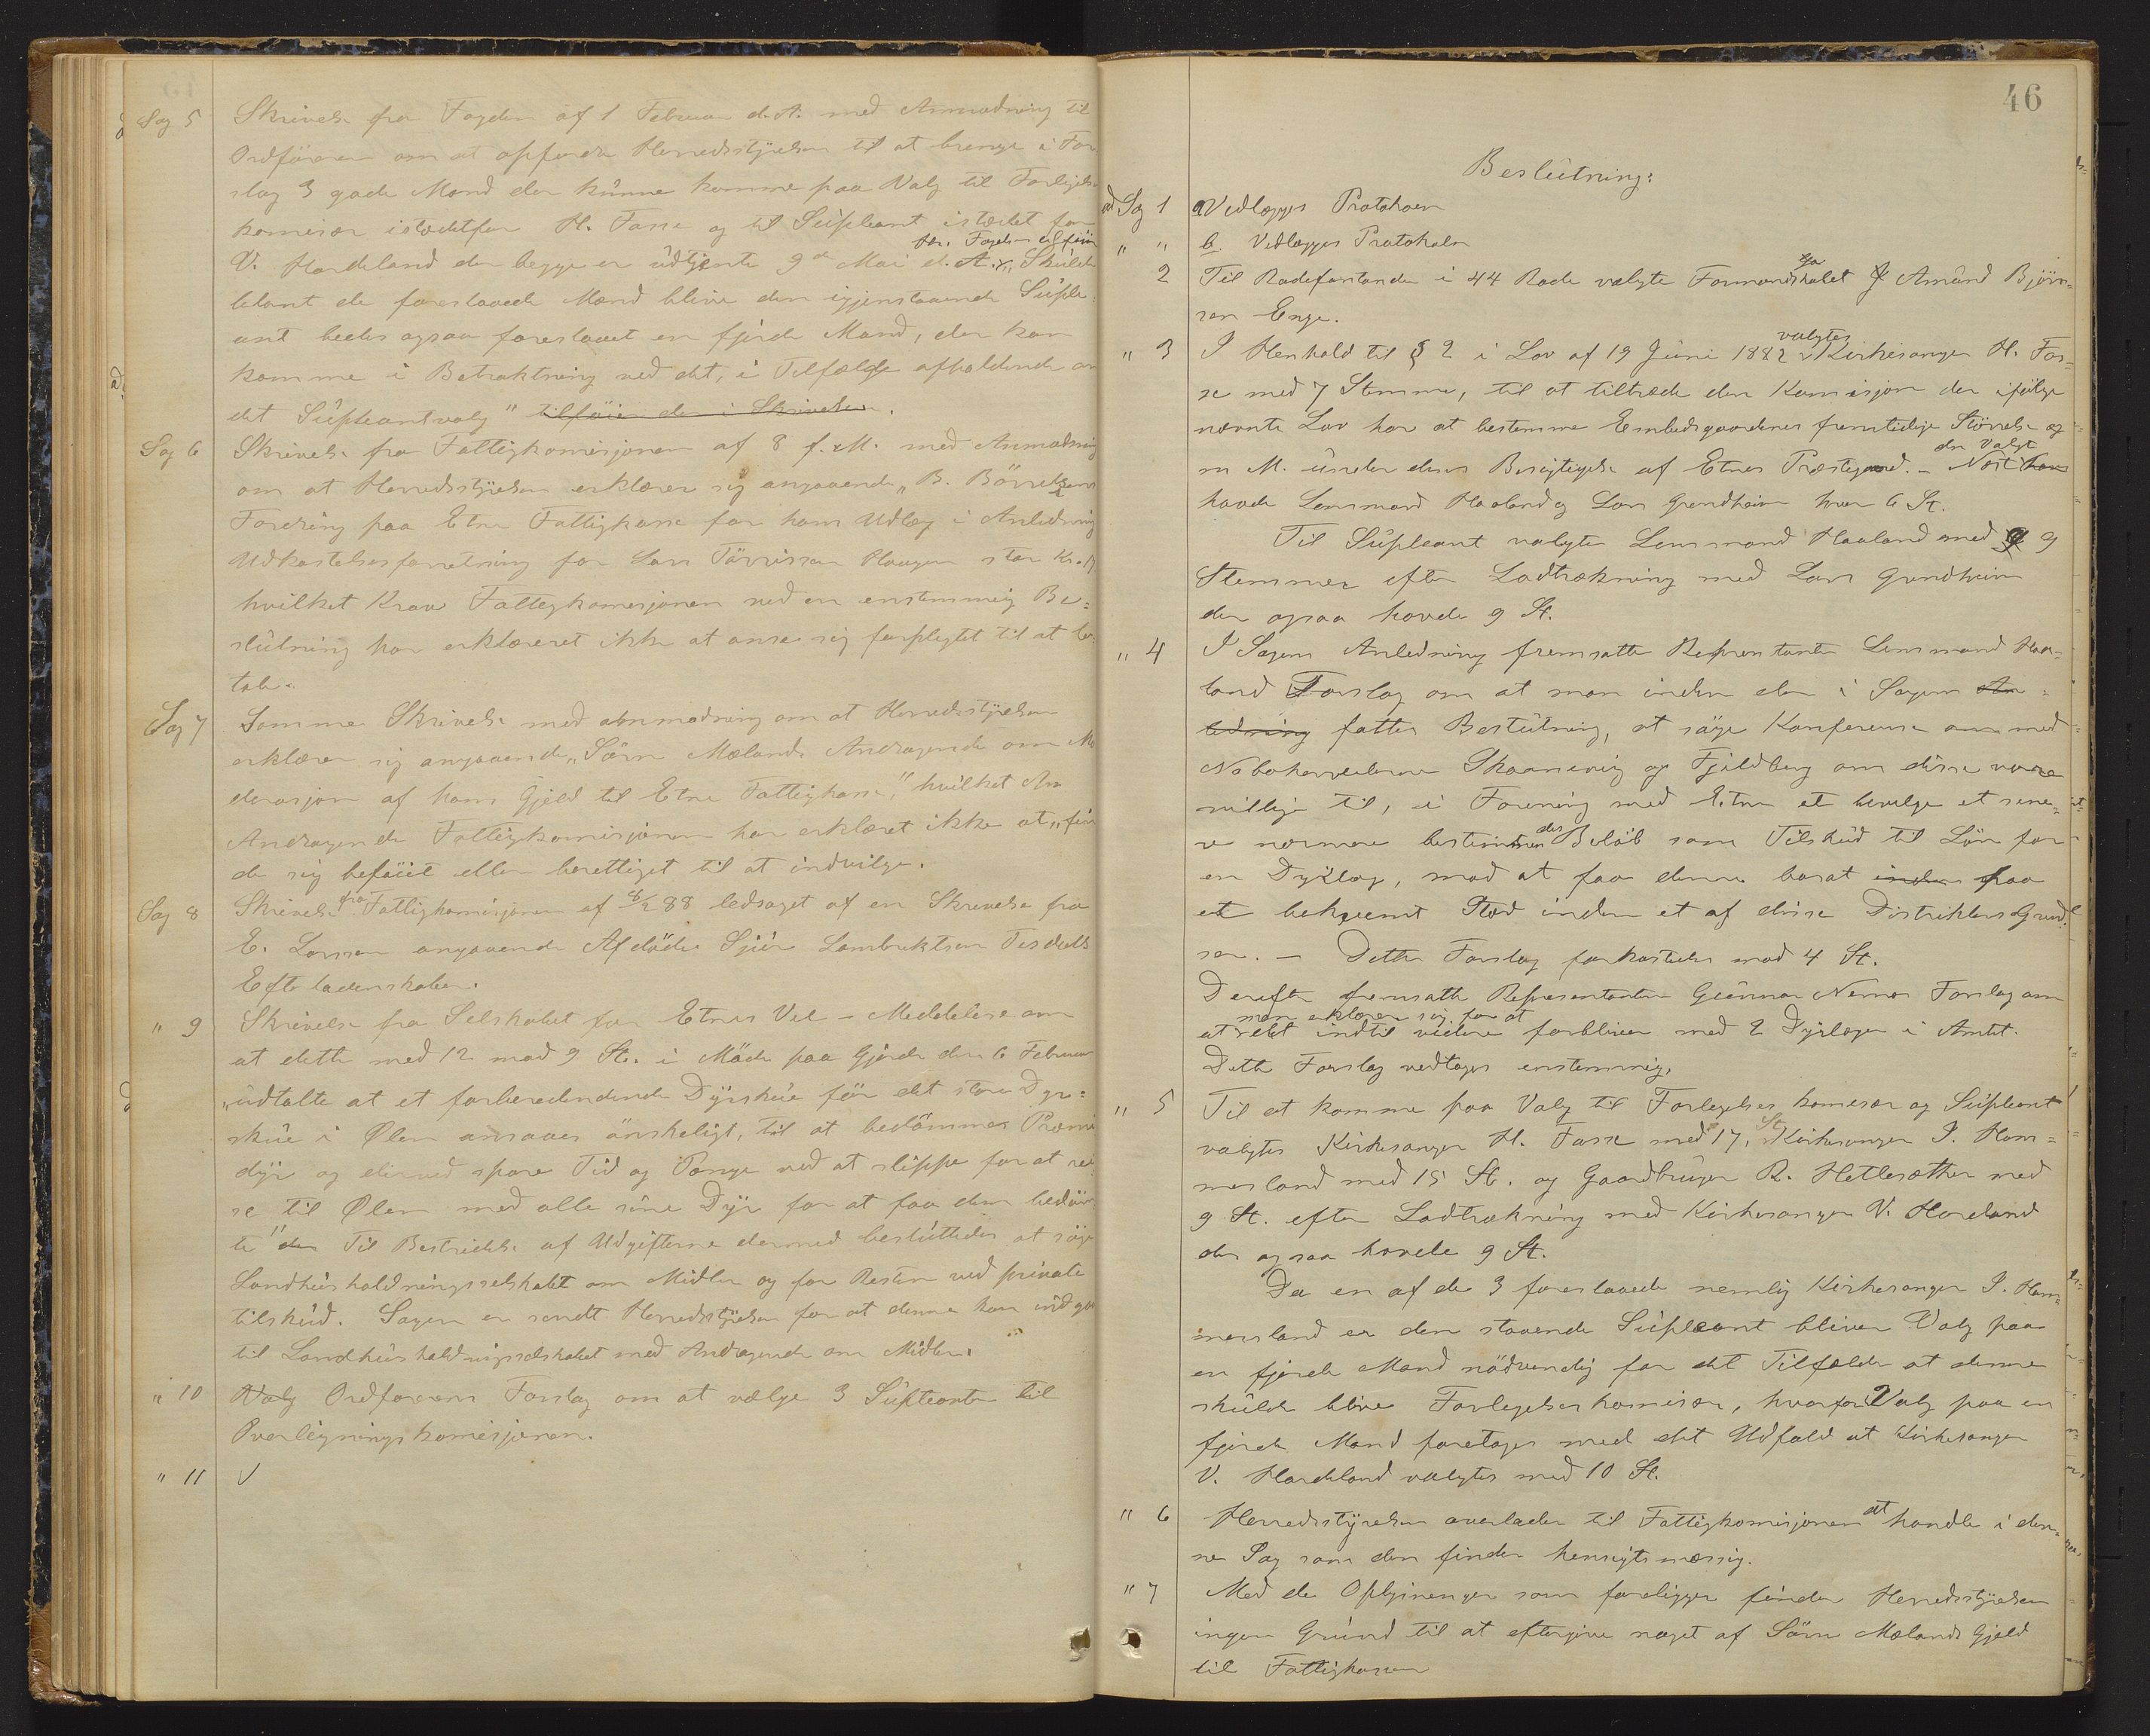 Sag 5 Skrivelse fra Fogden af 1 Februar d. A. med Anmodning til
Ordföreren om at opfordre Herredsstyrelsen til at bringe i For
slag 3 gode Mænd der kunne komme paa Valg til Forligels
komisær istedetfor H. Fasse og til Supleant istedet for
V. Hardeland der begge er udtjente 9de Mai d. A. "Skulde
blant de foreslaaede Mænd blive den igjenstaaende Suple-
ant bedes ogsaa foreslaaet en fjerde Mand, der kan
komme i Betraktning ved det, i Tilfælde afholdende an
det Supleantvalg" tilföier den i Skrivelsen.
Sag 6 Skrivelse fra Fattigkomisjonen af 8 f. M. med Anmodning
om at Herredsstyrelsen erklærer sig angaaende "B. Börretzens
Fordring paa Etne Fattigkasse for hans Udlæg i Anledning
Udkastelsesforretning for Lars Törrisson Haugen stor Kr.
hvilket Krav Fattigkomisjonen ved en enstemmig Be-
slutning har erklæreret ikke at anse sig forpligtet til at be-
tale.
Sag 7 Samme Skrivelse med anmodning om at Herredsstyrelsen
erklærer sig angaaende "Sörn Mælands Andragende om Mo
derasjon af hans Gjeld til Etne Fattigkasse", hvilket An
Andragende Fattigkomisjonen har erklæret ikke at "fin
de sig beföiet eller berettiget til at indvilge.
Sag 8 Skrivelse fra Fattigkomisjonen af 8/2 88 ledsaget af en Skrivelse fra
E. Larsson angaaende Afdöde Sjur Lambrektsen Tesdals
Efterladenskaber.
" 9 Skrivelse fra Selskabet for Etnes Vel - Meddelelse om
at dette med 12 mod 9 St. i Möde paa Gjerde den 6 Februar
"udtalte at et forberedendende Dyrskue för det store Dyr-
skue i Ølen ansaaes önskeligt, til at bedömmes Præmi
dyr og derved spare Tid og Penge ved at slippe for at rei
se til Ølen med alle sine Dyr for at faa dem bedöm
te" den Til Bestridelse af Udgifterne dermed besluttedes at söge
Landhusholdningsselskabet om Midler og for Resten ved private
tilskud. Sagen er sendt Herredsstyrelsen for at denne kan indgaa
til Landhusholdningsselskabet med Andragende om Midler.
" 10 Valg Ordförerens Forslag om at vælge 3 Supleanter til
Overligningskomisjonen.
" 11 V
46
Beslutning:
ad Sag 1 a Vedlægges Protokolen
" " b. Vedlægges Protokolen
2 Til Rodeforstander i 44 Rode valgte Formandskabet Amund Björn-
sen Enge.
" 3 I Henhold til § 2 i Lov af 19 Juni 1882 valgtes Kirkesanger H. Fas-
se med 7 Stemmer, til at tiltræde den Komisjon der ifölge
nævnte Lov har at bestemme Embedsgaardenes fremtidige Störrelse og
m M. under deres Besigtigelse af Etnes Præstegaard. - Næst den Valgte
havde Lensmand Haaland og Lars Grindheim hver 6 St.
Til Supleant valgtes Lensmand Haaland med 9
Stemmer efter Lodtrækning med Lars Grindheim
der ogsaa havde 9 St.
" 4 I Sagens Anledning fremsatte Representanten Lensmand Haa-
land Forslag om at man inden der i Sagen An-
ledning fattes Beslutning, at söge Konferense med
Naboherrederne Skaanevig og Fjeldberg om disse vare
villige til, i Forening med Etne at bevilge et sene-
re nærmere bestemmendes Belöb som Tilskud til Lön for
en Dyrlæge, mod at faa denne bosat inden paa
et bekvemt Sted inden et af disse Distrikters Grænd-
ser. - Dette Forslag forkastedes mod 4 St.
Derefter fremsatte Representanten Gunnar Nernes Forslag om
at man erklærer sig for at det indtil videre forbliver med 2 Dyrlæger i Amtet.
Dette Forslag vedtoges enstemmig.
" 5 Til at komme paa Valg til Forligelseskomisær og Supleant
valgtes Kirkesanger H. Fasse med 17, St Kirkesanger I. Ham-
mersland med 15 St. og Gaardbruger R. Hetlesæther med
9 St. efter Lodtrækning med Kirkesanger V. Hardeland
der ogsaa havde 9 St.
Da en af de 3 foreslaaede nemlig Kirkesanger I. Ham-
mersland er den staaende Supleant bliver Valg paa
en fjerde Mand nödvendig for det Tilfælde at denne
skulde blive Forligelseskomisær, hvorfor Valg paa en
fjerde Mand foretoges med det Udfald at Kirkesanger
V. Hardeland valgtes med 10 St.
" 6 Herredsstyrelsen overlader til Fattigkomisjonen at handle i den-
ne Sag som den finder hensigtsmæssig.
" 7 Med de Oplysninger som foreligger finder Herredsstyrelsen
ingen Grund til at eftergive noget af Sörn Mælands Gjeld
til Fattigkassen